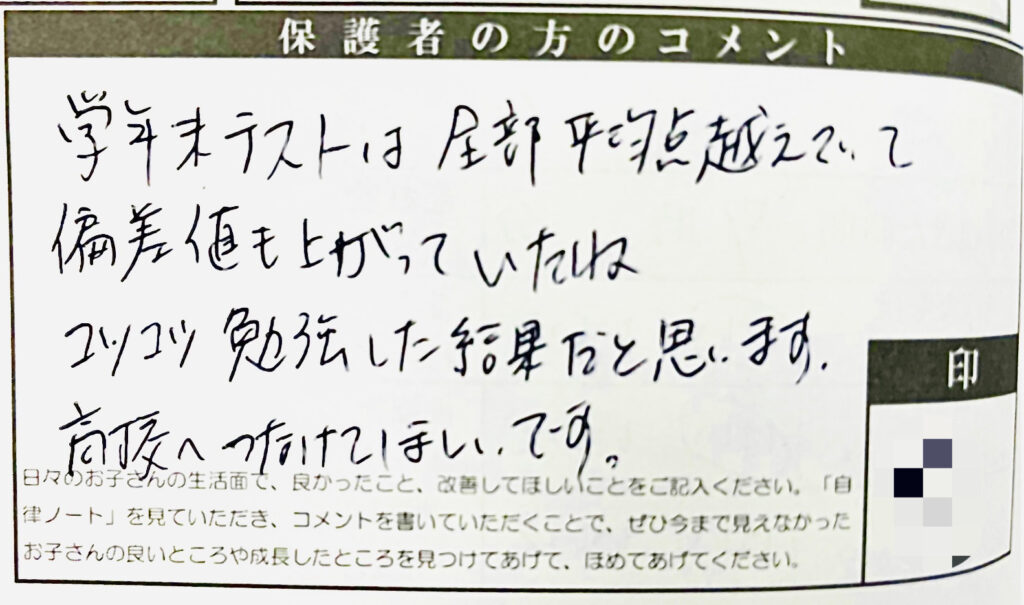 保護者の方のコメント
学年末テストは全部平均点越えていて
偏差値も上がっていたね
コツコツ勉強した結果だと思います.
高校へつなげてほしいです。
印
日々のお子さんの生活面で、良かったこと、改善してほしいことをご記入ください。「自
律ノート」を見ていただき、コメントを書いていただくことで、ぜひ今まで見えなかった
お子さんの良いところや成長したところを見つけてあげて、ほめてあげてください。